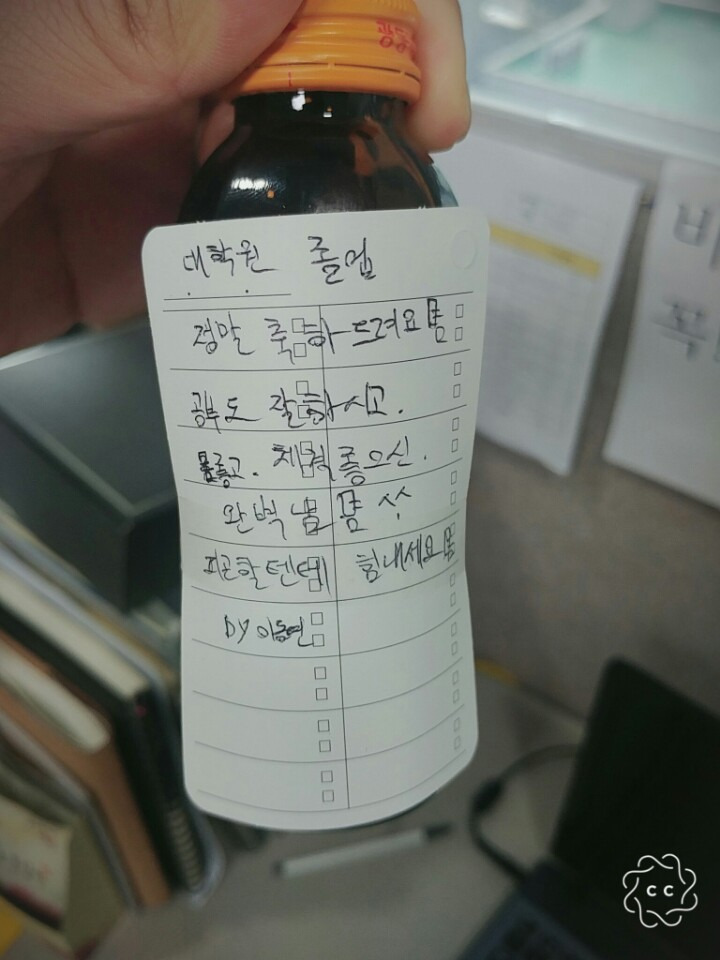 광동
대학원 졸업
정말 축하드려요
공부도 잘하시고.
체력 좋으신.
완벽
피곤할텐데 힘내세요
DY 이동연
CC